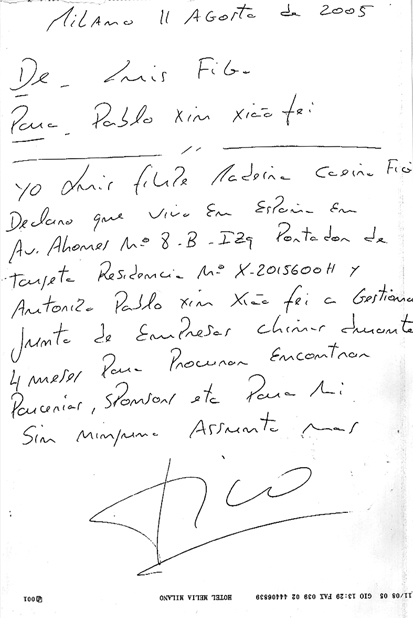 Milano 11 Agosto de 2005
De - Luis Figo
Para - Pablo xin xiao fei
yo Luis filipe Madeira Caeiro Figo
Declaro que vivo Em España En
Av. Nº 8-B-Izq Portador de
Tarjeta Residencia Nº X-2015600H y
Autorizo Pablo xin xião fei a Gestionar
junto de Empresas chinas durante
4 meses Para Procurar Encontrar
Parcerias, Sponsors etc Para Mi
Sin ninguno Assunto mas
Figo
11/08 05 GIO 13:29 FAX 039 02 44406839 HOTEL MELIA MILANO 001